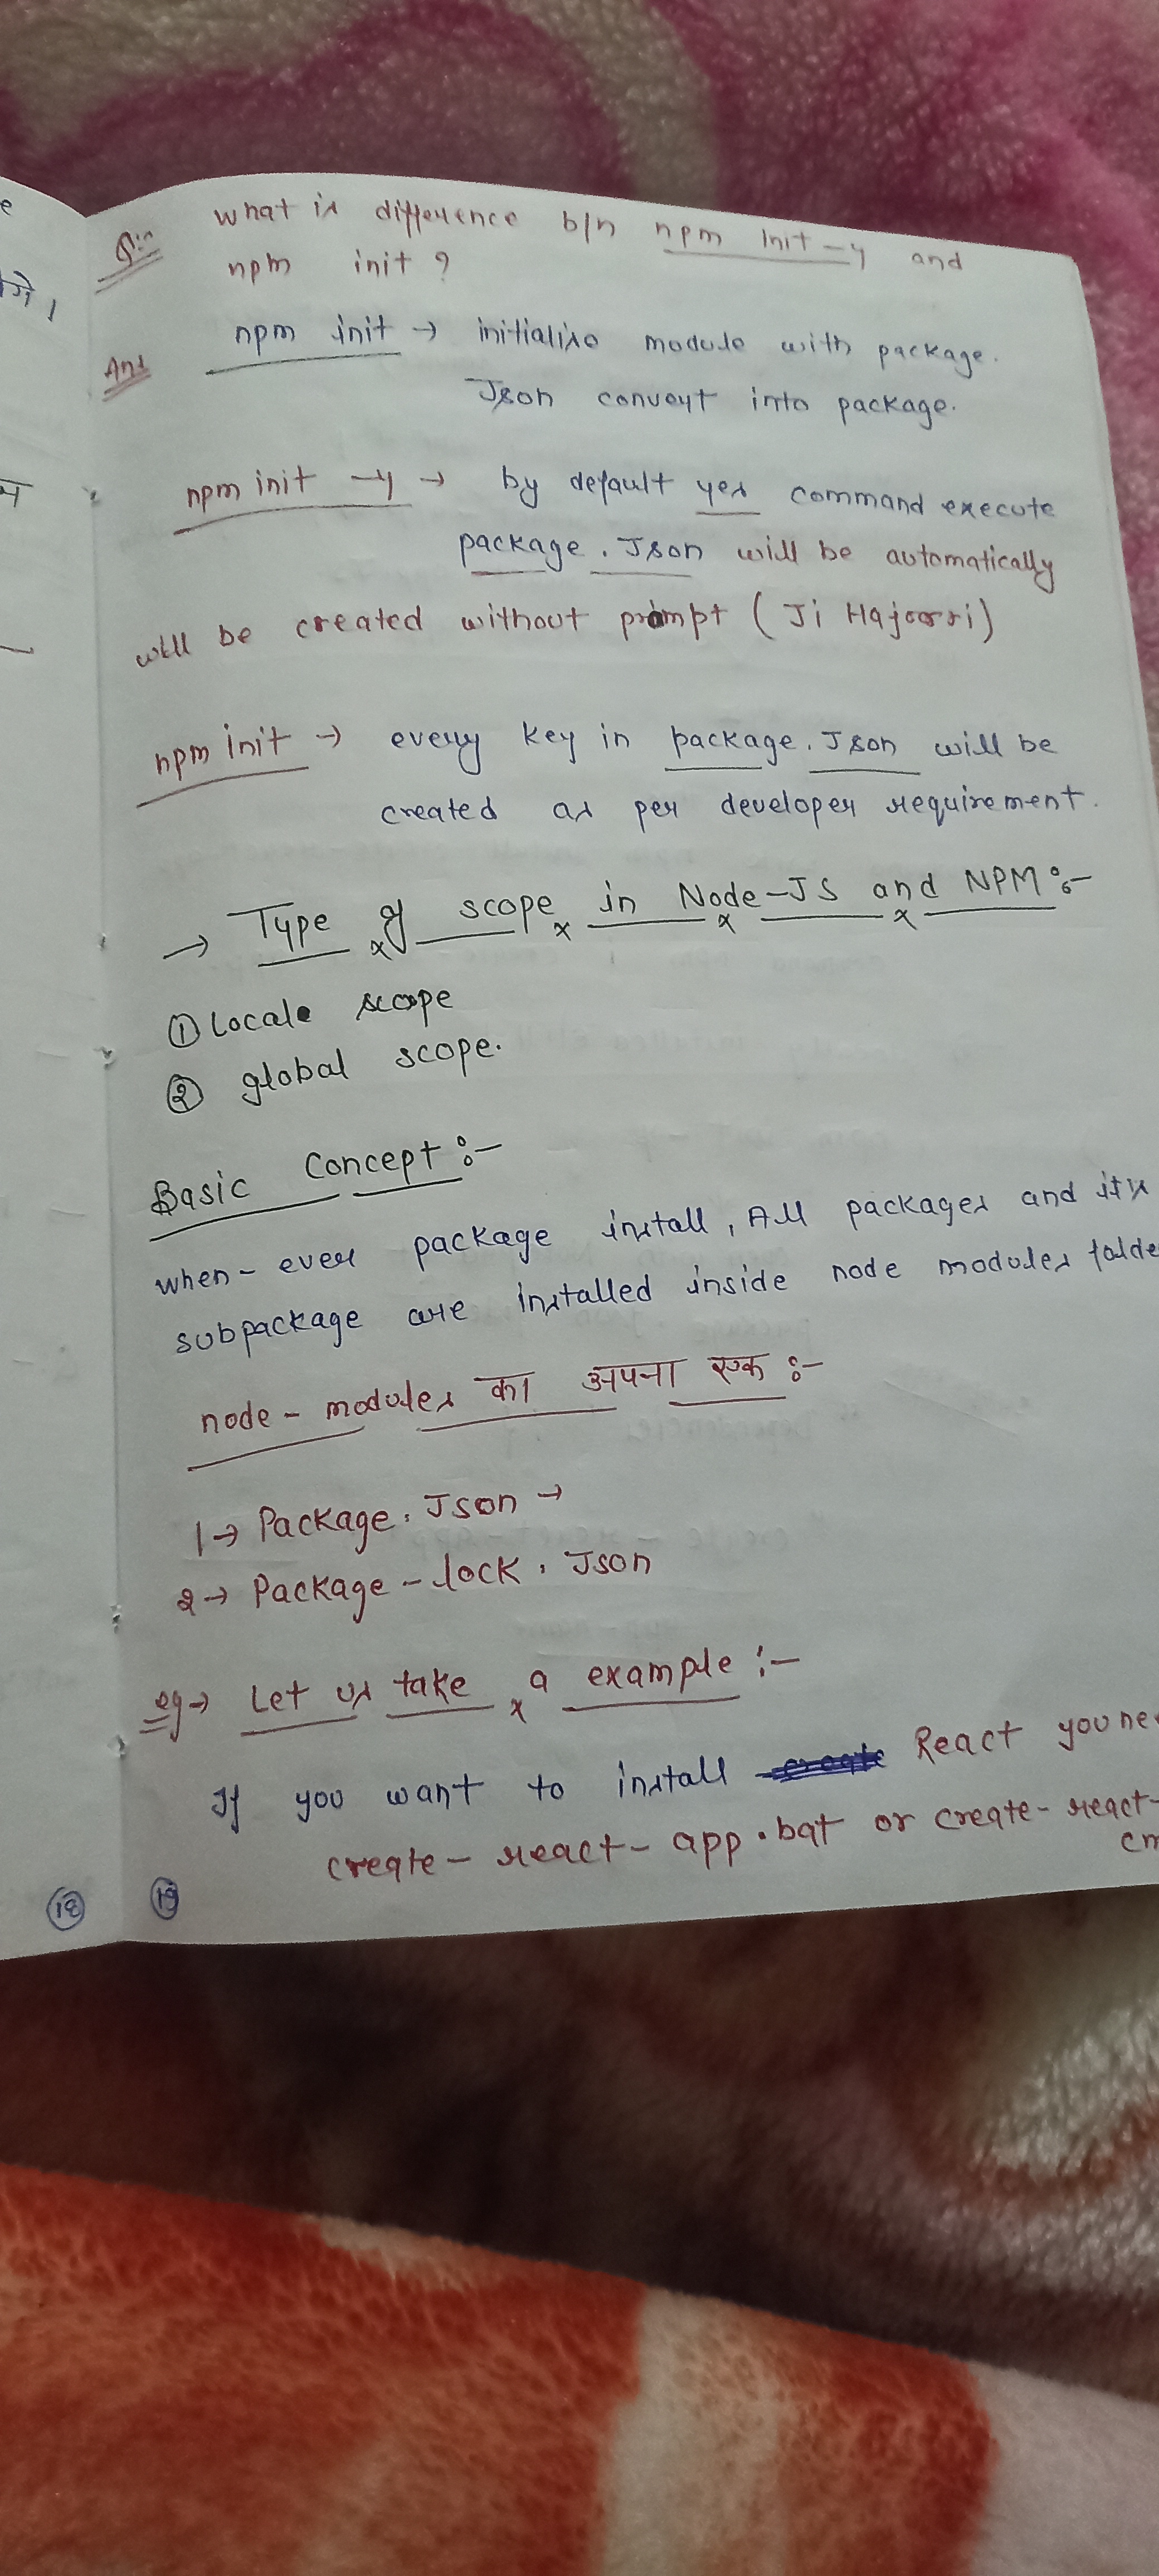 Qin What is difference b/n npm Init -y and
npm init ?
Ans npm init → initialise module with package.
Json convert into package.
npm init -y → by default yes command execute
package. Json will be automatically
will be created without prompt ( Ji Hajoorri)
npm init → every key in package. Json will be
created as per developer requirement.
→ Type of scope in Node-JS and NPM :-
① Locale scope
② global scope.
Basic Concept :-
when-ever package install, All packages and its
subpackage are installed inside node modules folde
node-modules का अपना एक :-
1→ Package. Json →
2→ Package-lock. Json
eg→ Let us take a example :-
If you want to install React you ne
create-react-app.bat or create-react-
cm
18 19